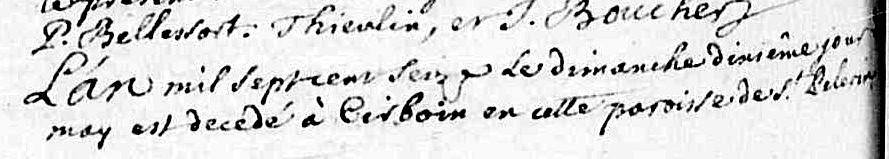 P. Bellessort. Thieulin, et J. Boucher
L'an mil sept cent seize le dimanche dixiême jour
may est decedé à Cisboin en cette paroisse de St. Pelerin